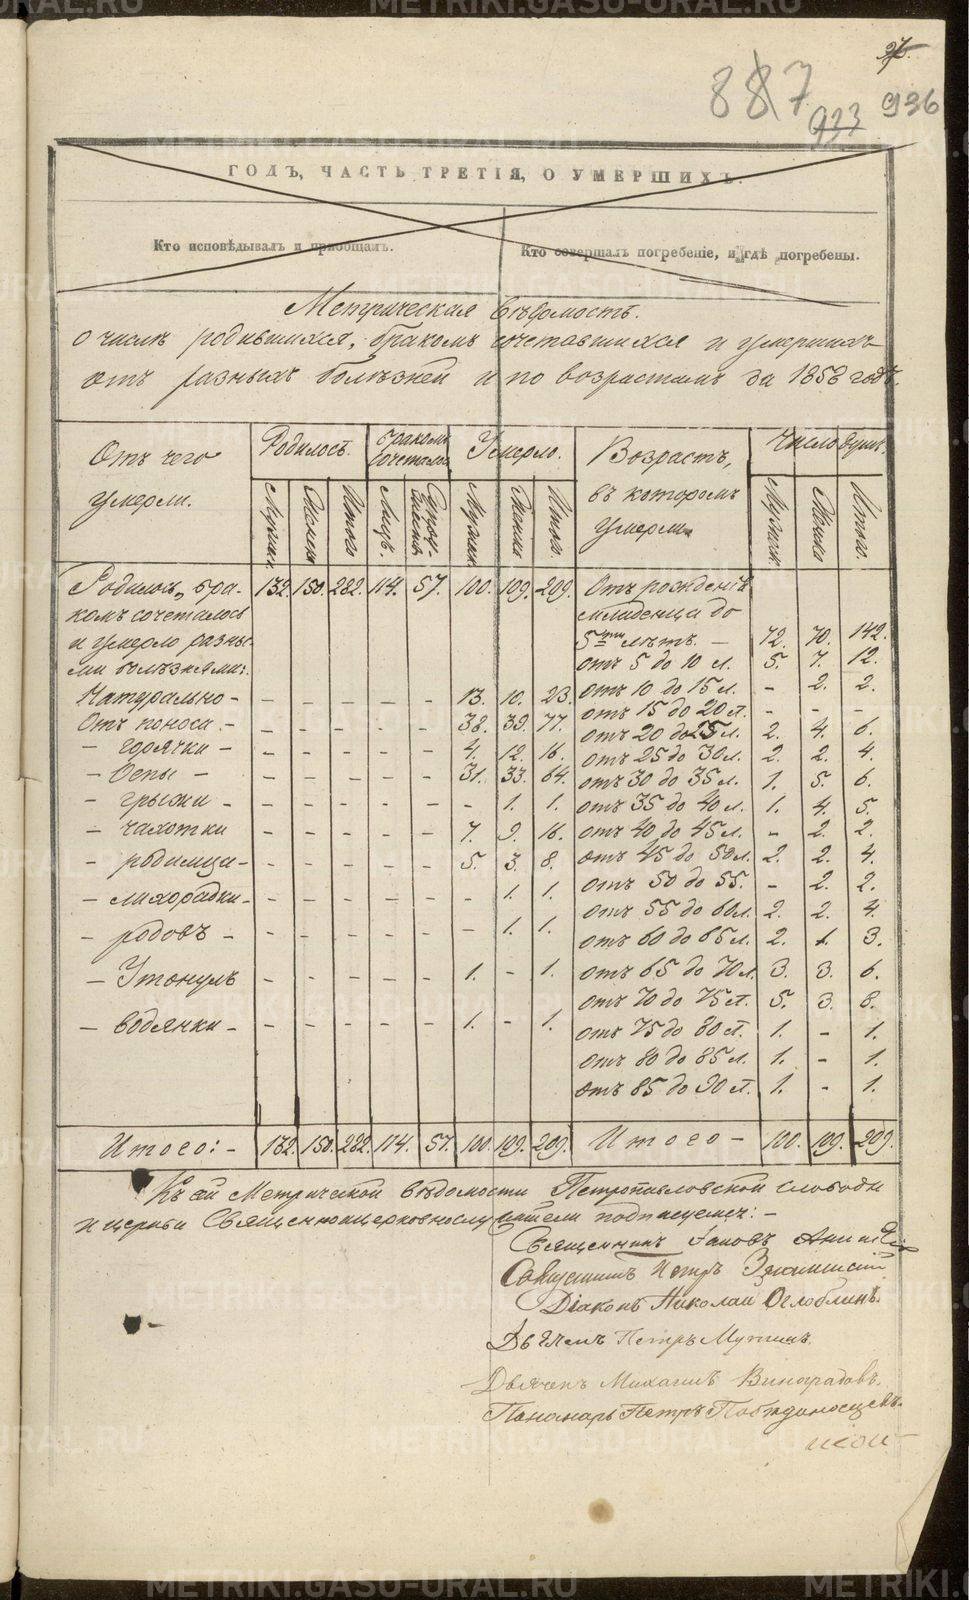 887
933
936
ГОДЪ, ЧАСТЬ ТРЕТІЯ, О УМЕРШИХЪ.
Кто исповѣдывалъ и пріобщалъ. Кто совершалъ погребеніе, и гдѣ погребены.
Метрическая вѣдомость.
о числѣ родившихся, бракомъ сочетавшихся и умершихъ
отъ разныхъ болѣзней и по возрастамъ за 1858 годъ.
Отъ чего умерли. Родилось. Бракомъ сочеталось Умерло. Возрастъ, въ которомъ умерли Число душъ.
Мужска. Женска Итого Лицъ. Мужск. Женска Итого. Мужска. Женска Итого.
Родилось, бра- 132. 150. 282. 114. 57. 100. 109. 209. Отъ рожденія
комъ сочеталось младенца до
и умерло разны- 5ти лѣтъ. — 72. 70. 142.
ми болѣзнями: отъ 5 до 10 л. 5. 7. 12.
Натурально - - - - - - 13. 10. 23. отъ 10 до 15 л. - 2. 2.
Отъ поноса - - - - - - 38. 39. 77. отъ 15 до 20 л. - - -
— горячки - - - - - - 4. 12. 16. отъ 20 до 25 л. 2. 4. 6.
— Оспы - - - - - - 31. 33. 64. отъ 25 до 30 л. 2. 2. 4.
— грыжи - - - - - - - 1. 1. отъ 30 до 35 л. 1. 5. 6.
— чахотки - - - - - 7. 9. 16. отъ 35 до 40 л. 1. 4. 5.
— родимца - - - - - - 5. 3. 8. отъ 40 до 45 л. - 2. 2.
— лихорадки - - - - - - - 1. 1. отъ 45 до 50 л. 2. 2. 4.
— родовъ - - - - - - - 1. 1. отъ 50 до 55. - 2. 2.
— Утонулъ - - - - - 1. - 1. отъ 55 до 60 л. 2. 2. 4.
— водянки - - - - - - 1. - 1. отъ 60 до 65 л. 2. 1. 3.
отъ 65 до 70 л. 3. 3. 6.
отъ 70 до 75 л. 5. 3. 8.
отъ 75 до 80 л. 1. - 1.
отъ 80 до 85 л. 1. - 1.
отъ 85 до 90 л. 1. - 1.
Итого: - 132. 150. 282. 114. 57. 100. 109. 209. Итого - 100. 109. 209.
Къ сей Метрической вѣдомости Петропавловской слободы
и церкви Священноцерковнослужители подписуемся: -
Священникъ Іаковъ
Петръ
Діаконъ Николай Оглоблинъ.
Дьячекъ Петръ
Дьячекъ Михаилъ Виноградовъ.
Пономарь Петръ Побѣдоносцевъ.
METRIKI.GASO-URAL.RU